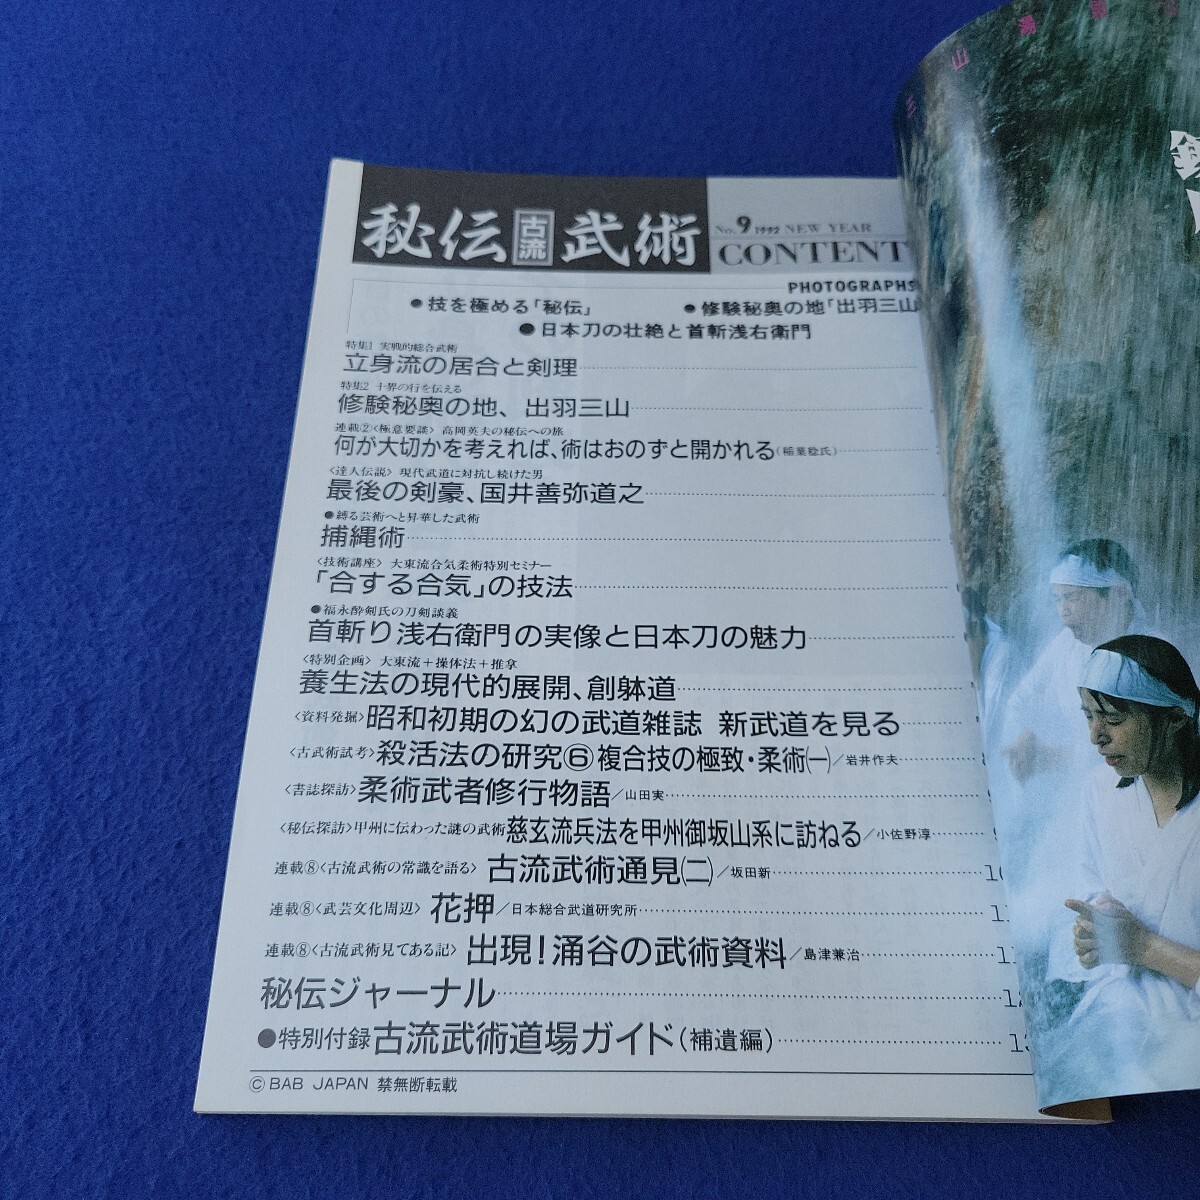 秘伝古流武術
No.9 1992 NEW YEAR
CONTENT
PHOTOGRAPHS
●技を極める「秘伝」 ●修験秘奥の地「出羽三山
●日本刀の壮絶と首斬浅右衛門
特集1 実戦的総合武術
立身流の居合と剣理
特集2 十界の行を伝える
修験秘奥の地、出羽三山
連載②〈極意要談〉 高岡英夫の秘伝への旅
何が大切かを考えれば、術はおのずと開かれる(稲葉稔氏)
〈達人伝説〉 現代武道に対抗し続けた男
最後の剣豪、国井善弥道之
●縛る芸術へと昇華した武術
捕縄術
〈技術講座〉 大東流合気柔術特別セミナー
「合する合気」の技法
●福永酔剣氏の刀剣談義
首斬り浅右衛門の実像と日本刀の魅力
〈特別企画〉 大東流+操体法+推拿
養生法の現代的展開、創躰道
〈資料発掘〉昭和初期の幻の武道雑誌 新武道を見る
〈古武術試考〉殺活法の研究⑥複合技の極致・柔術(一)/岩井作夫
〈書誌探訪〉柔術武者修行物語/山田実
〈秘伝探訪〉甲州に伝わった謎の武術 慈玄流兵法を甲州御坂山系に訪ねる/小佐野淳
連載⑧〈古流武術の常識を語る〉 古流武術通見(二)/坂田新
連載⑧〈武芸文化周辺〉 花押/日本総合武道研究所
連載⑧〈古流武術見てある記〉 出現!涌谷の武術資料/島津兼治
秘伝ジャーナル
●特別付録 古流武術道場ガイド(補遺編)
©BAB JAPAN 禁無断転載